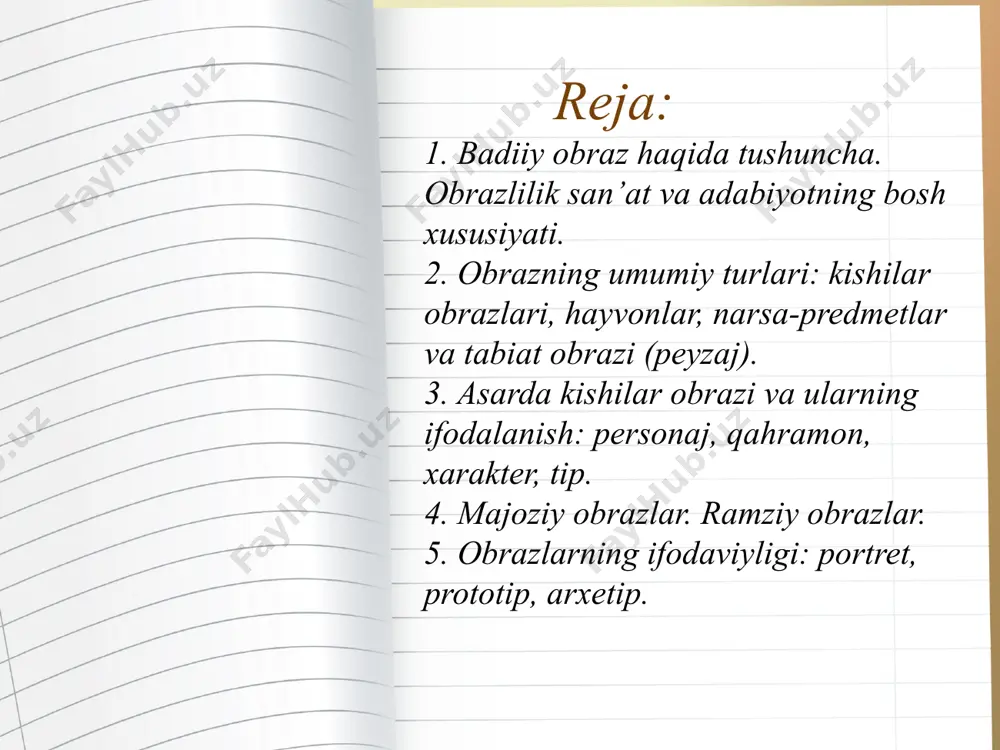 Reja:
1. Badiiy obraz haqida tushuncha.
Obrazlilik san’at va adabiyotning bosh
xususiyati.
2. Obrazning umumiy turlari: kishilar
obrazlari, hayvonlar, narsa-predmetlar
va tabiat obrazi (peyzaj).
3. Asarda kishilar obrazi va ularning
ifodalanish: personaj, qahramon,
xarakter, tip.
4. Majoziy obrazlar. Ramziy obrazlar.
5. Obrazlarning ifodaviyligi: portret,
prototip, arxetip.
FaylHub.uz
FaylHub.uz
FaylHub.uz
b.uz
FaylHub.uz
FaylHub.uz